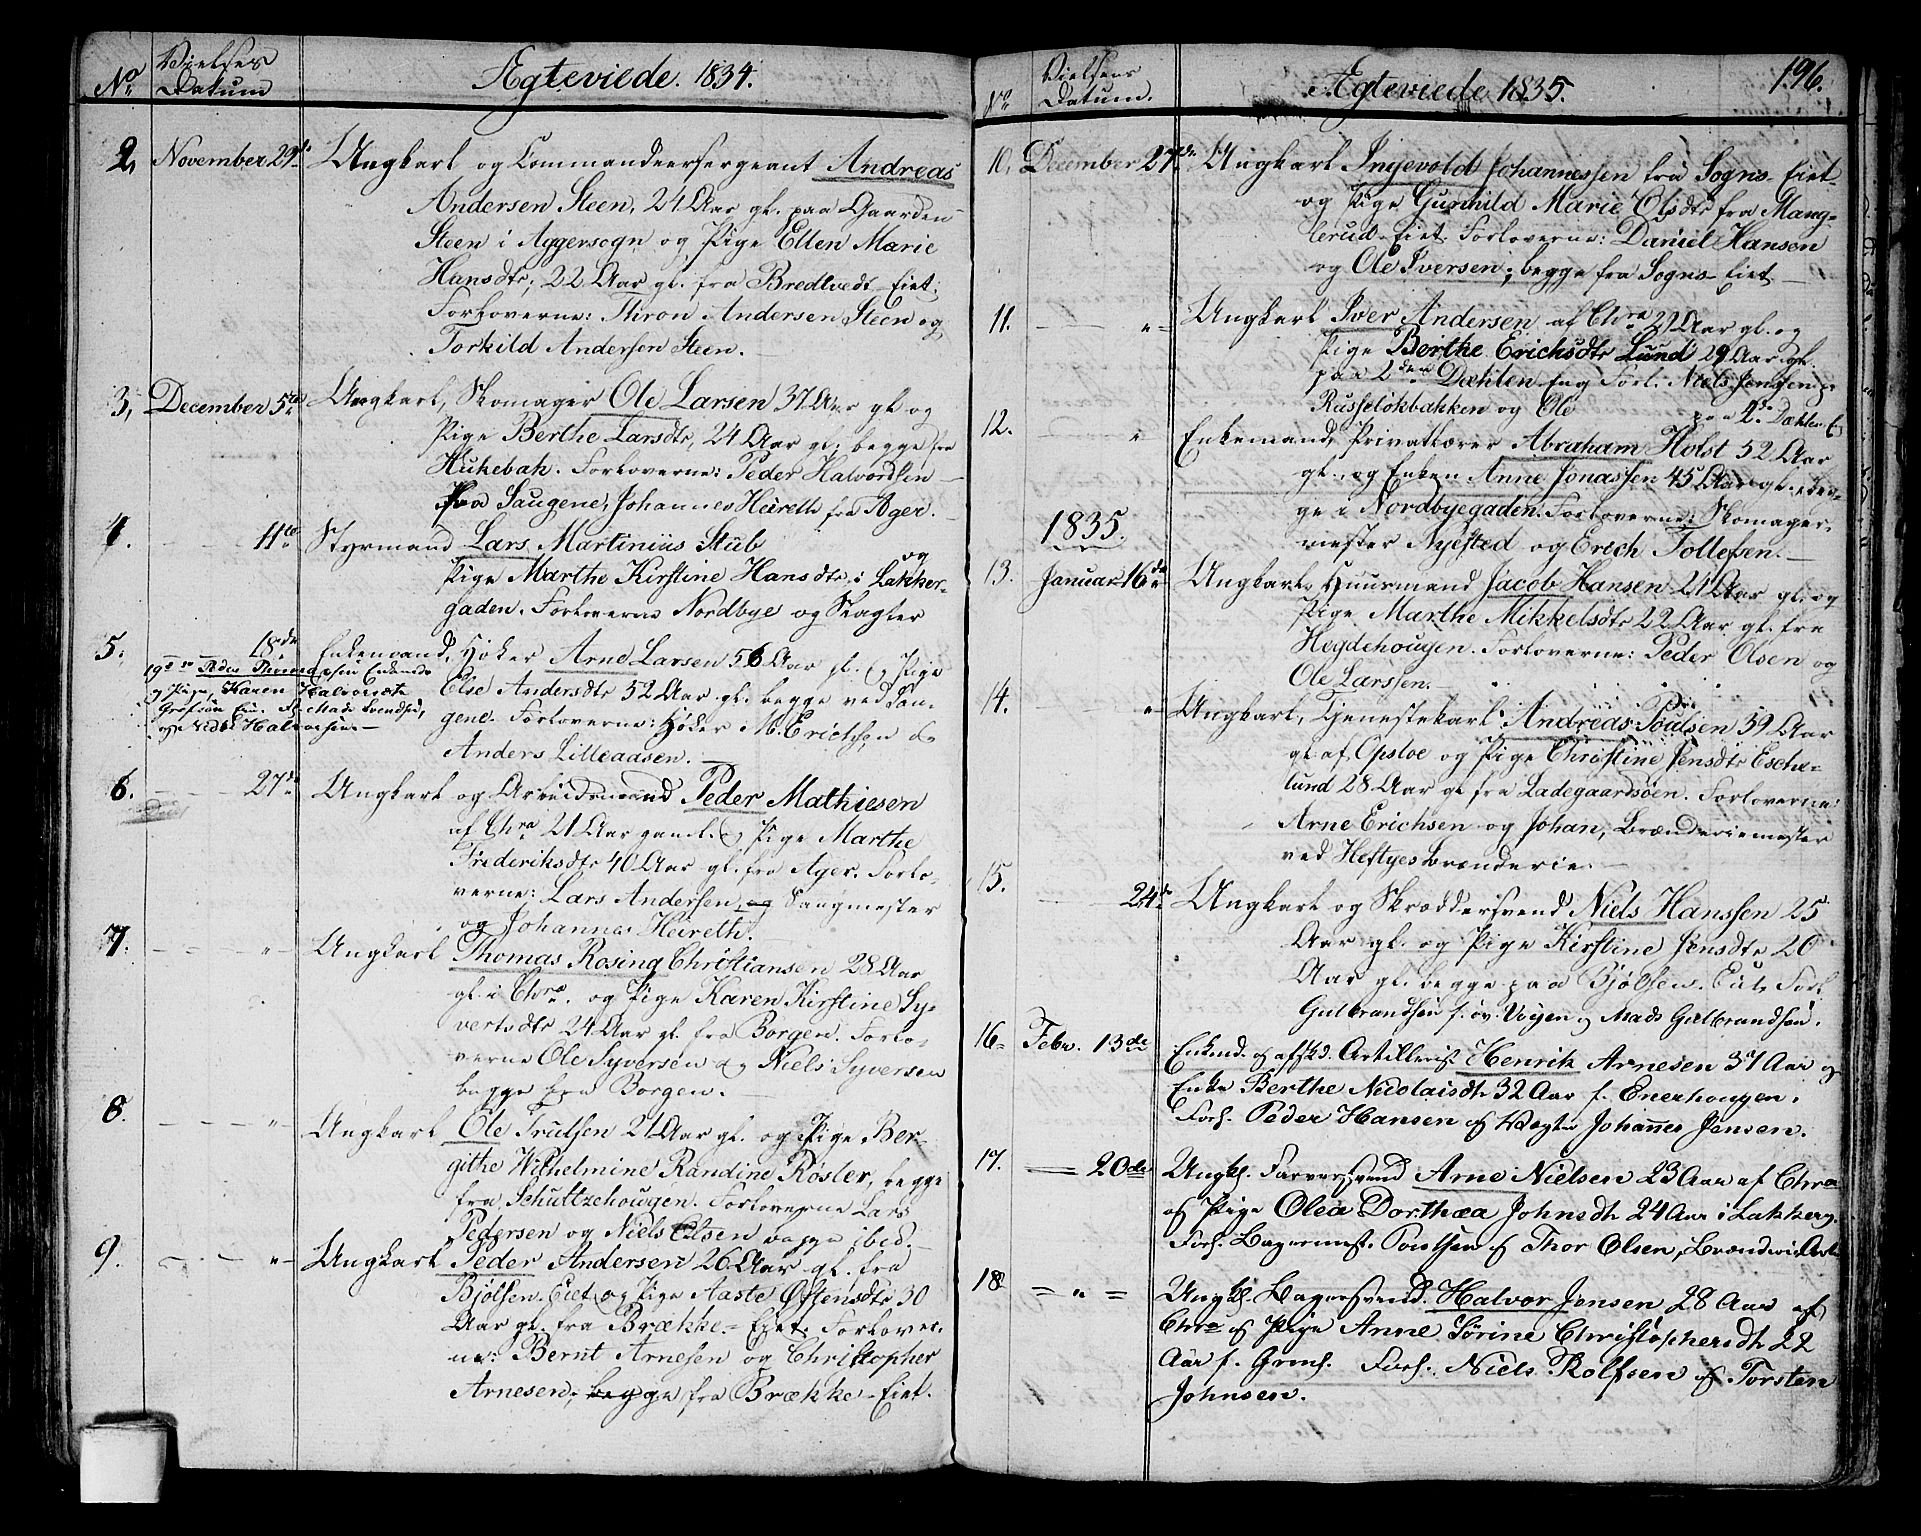 No Vielses Datum Ægteviede. 1834.
2, November 29de Ungkarl og Commandeersergeant Andreas
Andersen Steen, 24 Aar gl. paa Gaarden
Steen i Aggersogn og Pige Ellen Marie
Hansdtr, 22 Aar gl. fra Bredtvedt-Eiet;
Forloverne: Thron Andersen Steen og
Torkild Andersen Steen.
3, December 5te Ungkarl, Skomager Ole Larsen 37 Aar gl og
Pige Berthe Larsdtr, 24 Aar gl. begge fra
Hukebak. Forloverne: Peder Halvordsen
paa Saugene, Johannes Heireth fra Ager.
4. 11te Styrmand Lars Martinius Stub
og
Pige Marthe Kirstine Hansdtr, i Lakker-
gaden. Forloverne Nordbye og Slagter
5. 18de Enkemand, Høker Arne Larsen 56 Aar gl. og Pige
Else Andersdtr 52 Aar gl. begge ved Sau-
gene. Forloverne: Høker M. Erichsen &
Anders Lilleaasen.
19de Peder Thomasen Enkemd
og Pige, Karen Halvorsdtr
Grefsen Eie. F. Mads Svendsen,
Halvorsen
6. 27de Ungkarl og Arbeidsmand Peder Mathiesen
af Chra 21 Aar gaml. og Pige Marthe
Frederiksdtr 40 Aar gl. fra Ager. Forlo-
verne: Lars Andersen og Saugmester
og Johannes Heireth.
7. " Ungkarl Thomas Rosing Christiansen 28 Aar
gl. i Chra. og Pige Karen Kirstine Sy-
vertsdtr 24 Aar gl. fra Borgen. Forlo-
verne Ole Syversen og Niels Syversen
begge fra Borgen.
8. " Ungkarl Ole Trulsen 21 Aar gl. og Pige Ber-
githe Wilhelmine Randine Røsler, begge
fra Schultzehougen. Forloverne Lars
Pedersen og Niels Olsen begge ibid.
9. " Ungkarl Peder Andersen 26 Aar gl. fra
Bjølsen-Eiet og Pige Aaste Østensdtr 30
Aar gl. fra Brække-Eiet. Forlover-
ne: Bernt Arnesen og Christopher
Arnesen, begge fra Brække-Eiet.
No Vielsens Datum. Ægteviede 1835. 196.
10, December 27de Ungkarl Ingevold Johannessen fra Sogns-Eiet
og Pige Gunhild Marie Olsdtr fra Mang-
lerud-Eiet. Forloverne: Daniel Hansen
og Ole Iversen, begge fra Sogns-Eiet
11. " Ungkarl Iver Andersen af Chra 29 Aar gl. og
Pige Berthe Erichsdtr Lund 29 Aar gl.
paa 2den Dæhlen Eng Forl. Niels Jensen p
Russeløkbakken og Ole paa 2de Dæhlen E
12. " Enkemand, Privatlærer Abraham Holst 52 Aar
gl. og Enken Anne Jonassen 45 Aar gl. beg-
ge i Nordbyegaden. Forloverne: Skomager-
mester Nyested og Erich Tollefsen.
1835.
13. Januar 16de Ungkarl, Huusmand Jacob Hansen 21 Aar gl. og
Pige Marthe Mikkelsdtr 22 Aar gl. fra
Hegdehougen. Forloverne: Peder Olsen og
Ole Larssen.
14. " Ungkarl, Tjenestekarl Andreas Poulsen 39 Aar
gl. af Opsloe og Pige Christine Jensdtr Esche-
lund 28 Aar gl fra Ladegaardsøen. Forloverne:
Arne Erichsen og Johan, Brænderiemester
ved Heftyes Brænderie.
15. 24de Ungkarl og Skræddersvend Niels Hanssen 25
Aar gl. og Pige Kirstine Jensdtr 20
Aar gl. begge paa Bjølsen. Forl.
Gulbrandsen f. øv. Voyen og Mads Gulbrandsen.
16. Febr. 13de Enkemd. og afskd. Artillerist Henrik Arnesen 37 Aar og
Enke Berthe Nicolaisdtr 32 Aar f. Enerhougen.
Forl. Peder Hansen og Vægter Johannes Jensen.
17. 20de Ungkl. Farversvend Arne Nielsen 23 Aar af Chra
og Pige Olea Dorthæa Johnsdtr 24 Aar i Lakkerg.
Forl. Bagermest. Poulsen og Thor Olsen, Brænderie
18 " Ungkl. Bagersvend. Halvor Jensen 28 Aar af
Chra og Pige Anne Sørine Christophersdtr 22
Aar f. Grøns. Forl. Niels Rolfsen og Torsten
Johnsen.